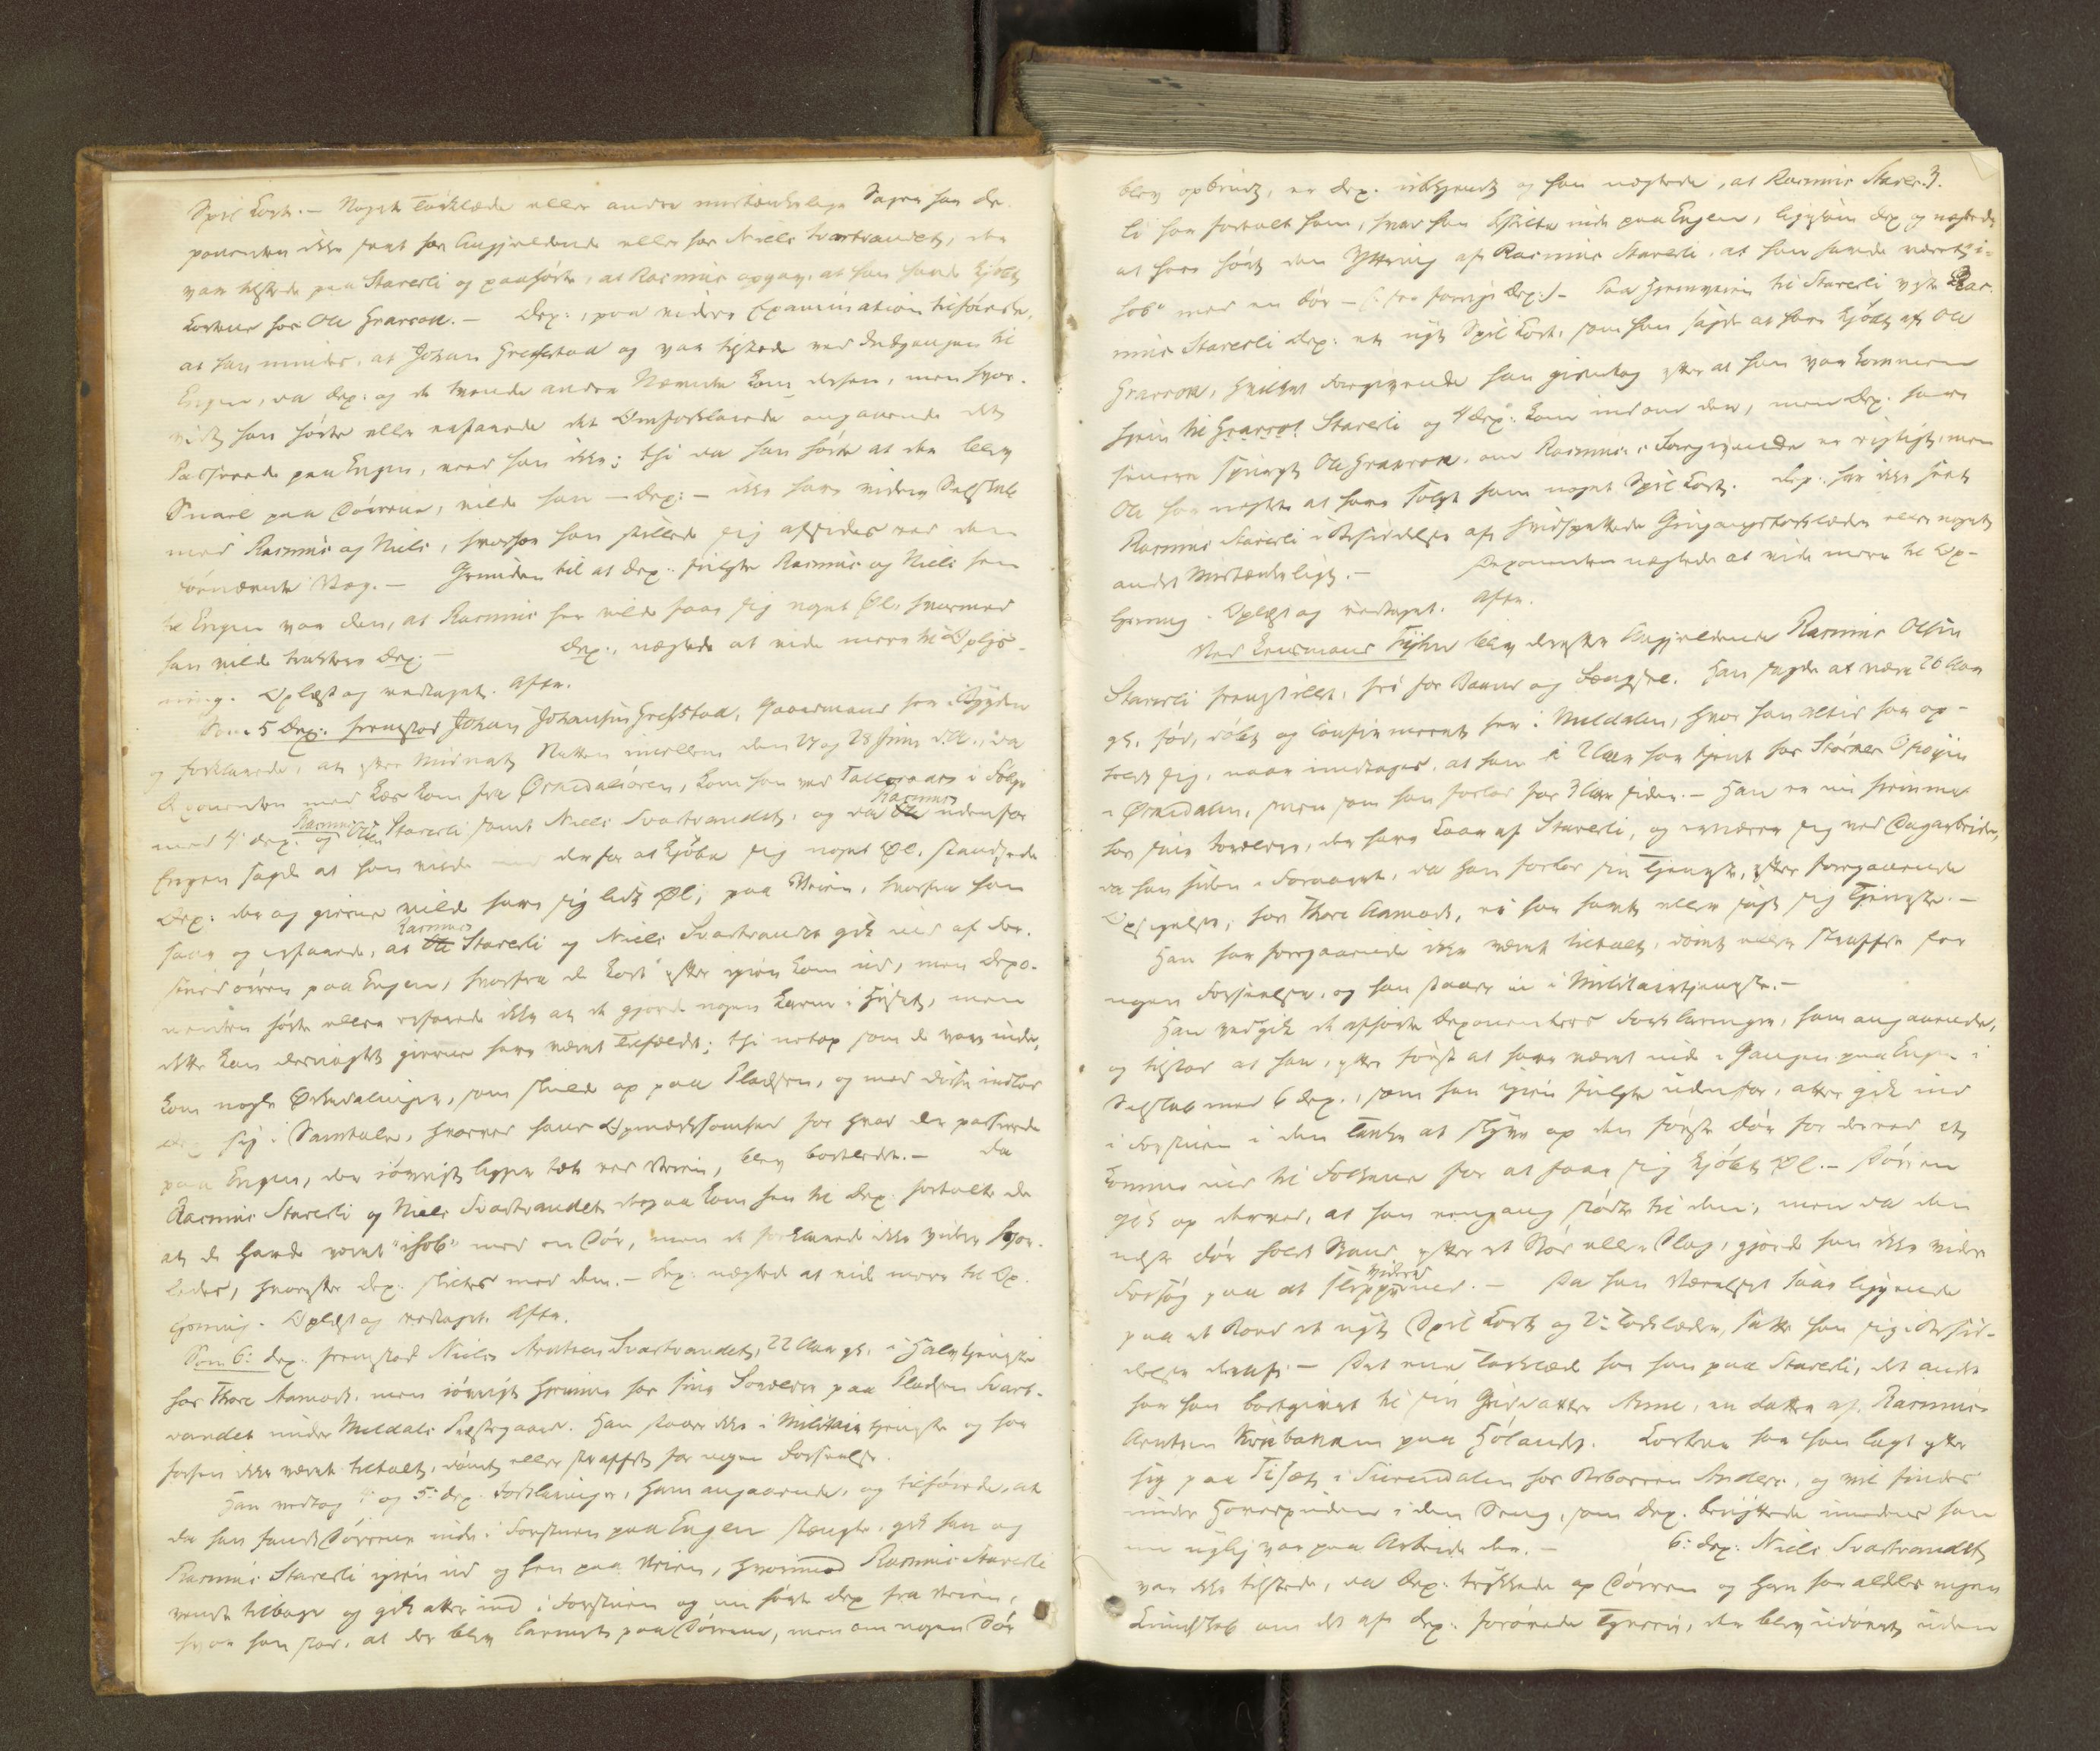 Spil Kort. — Noget Tørklæde eller andre mistænkelige Sager har De-
ponenten ikke seet hos Angjeldende eller hos Niels Svartvandet, der
var tilstede paa Starerli og paahørte, at Rasmus opgav, at han havde kjøbt
Kortene hos Ole Graeson. — Dep:, paa videre Examination tilføiede,
at han mindes, at Johan Grefstad og var tilstede ved Indgangen til
Engen, da Dep: og de tvende andre Nævnte kom dertil, men hvor-
vidt han hørte eller erfarede det Omforklarede angaaende det
Passerede paa Engen, veed han ikke; thi da han hørte at der blev
Smæl paa Dørrene, vilde han — Dep: — ikke have videre Selskab
med Rasmus og Niels, hvorfor han skillede sig afsides ved den
fornævnte Veg. — Grunden til at Dep: fulgte Rasmus og Niels hen
til Engen var den, at Rasmus her vilde faae sig noget Øl, hvormed
han vilde traktere Dep: — Dep:, nægtede at vide mere til Oplys-
ning. Oplæst og vedtaget. Aftr.
Som 5 Dep: fremstod Johan Johansen Grefstad, Gaardmand her i Bygden
og forklarede, at efter Midnat Natten imellem den 27 og 28 Juni d. A., da
Deponenten med Læs kom fra Ørkedalsøren, kom han ved Talleraas i Følge
med 4' dep. og Rasmus Olsen Starerli samt Niels Svartvandet, og da Rasmus udenfor
Engen sagde at han vilde ind der for at kjøbe sig noget Øl, standsede
Dep: der og gierne vilde have sig lidt Øl, paa Veien, hvorfra han
saae og erfarede, at Rasmus Starerli og Niels Svartvandet gik ind af For-
stuedøren paa Engen, hvorfra de kort efter igien kom ud, men Depo-
nenten hørte eller erfarede ikke at de gjorde nogen Larm i Huset, men
dette kan dernæst gierne have været Tilfældet; thi netop som de var inde,
kom nogle Ørkedalinger, som hvilede op paa Pladsen, og med disse indlod
Dep sig i Samtale, hvorved hans Opmærksomhed for hvad der passerede
paa Engen, der iøvrigt ligger tæt ved Veien, blev bortledt. — Da
Rasmus Starerli og Niels Svartvandet derpaa kom hen til Dep. fortalte de
at de havde været "ihob" med en Dør, men de forklarede ikke videre hvor-
ledes, hvorefter Dep: skiltes med dem. — Dep: nægtede at vide mere til Op-
lysning. Oplæst og vedtaget. Aftr.
Som 6: Dep: fremstod Niels Arntsen Svartvandet, 22 Aar gl. i Halvtjeneste
hos Thore Aamodt, men iøvrigt hjemme hos sine Forældre paa Pladsen Svart-
vandet under Meldals Præstegaard. Han staaer ikke i Militair tjeneste og har
forhen ikke været tiltalt, dømt eller straffet for nogen Forseelse.
Han vedtog 4' og 5: Dep. Forklaringer, ham angaaende, og tilføiede, at
da han fandt Dørrene inde i Forstuen paa Engen stængte, gik han og
Rasmus Starerli igien ud og hen paa Veien, hvorimod Rasmus Starerli
vendte tilbage og gik atter ind i Forstuen og nu hørte Dep fra Veien,
hvor han stod, at der blev larmet paa Dørrene, men om nogen Dør
3.
blev opbrudt, er Dep. ubekjendt og han nægtede, at Rasmus Starer-
li har fortalt ham, hvad han bestilte inde paa Engen, ligesom Dep og nægtede
at have hørt den Yttring af Rasmus Starerli, at han havde været "i-
hob" med en Dør — (: see forrige Dep:) — Paa Hjemveien til Starerli viste Ras-
mus Starerli Dep: et nyt Spil Kort, som han sagde at have kjøbt af Ole
Graeson, hvilket Foregivende han gientog efter at han var kommen
hjem til Starerli og 4' Dep: kom ind om der, men Dep: havde
senere spurgt Ole Graeson, om Rasmus's Foregivende er rigtigt, men
Ole har nægtet at have solgt ham noget Spil Kort. Dep: har ikke seet
Rasmus Starerli i Besiddelse af hvidspættede Gingangstørklæder eller noget
andet Mistænkeligt. — Deponenten nægtede at vide mere til Op-
lysning. Oplæst og vedtaget. Aftr.
Ved Lensmand Fyhn blev derefter Angjeldende Rasmus Olsen
Starerli fremstillet, fri for Baand og Fængsel. Han sagde at være 20 Aar
gl., fød, døbt og confirmeret her i Meldalen, hvor han altid har op-
holdt sig, naar undtages, at han i 2 Aar har tjent hos Størker Opøyen
i Ørkedalen, hvem som han forlod for 3 Aar siden. — Han er nu hjemme
hos sine Forældre, der have Kaar af Starerli, og ernærer sig ved Dagarbeide,
da han siden i Foraaret, da han forlod sin Tjeneste, efter foregaaende
Opsigelse, hos Thore Aamodt, ei har havt eller søgt sig Tjeneste. —
Han har foregaaende ikke været tiltalt, dømt eller straffet for
nogen Forseelse, og han staaer ei i Militairtjeneste. —
Han vedgik de afhørte Deponenters Forklaringer, ham angaaende,
og tilstod at han, efter først at have været inde i Gangen paa Engen i
Selskab med 6 Dep., som han igien fulgte udenfor, atter gik ind
i Forstuen i den Tanke at skyve op den første Dør for derved at
komme ind til Folkene for at faae sig kjøbt Øl. — Døren
gik op derved, at han engang stødte til den; men da den
næste Dør holdt Stand efter et Stød eller Slag, gjorde han ikke videre
Forsøg paa at slippe videre ind. — Da han i Værelset saae liggende
paa et Bord et nyt Spil Kort og 2: Tørklæder, satte han sig i Besid-
delse deraf. — Det ene Tørklæde har han paa Starerli, det andet
har han bortgivet til sin Gudsdatter Anne, en Datter af Rasmus
Arntsen Kvikbakken paa Hølandet. Kortene har han lagt efter
sig paa Tiset i Surendalen hos Beboeren Anders, og vil findes
under Hovedpuden i den Seng, som Dep. benyttede imedens han
nu nylig var paa Arbeide der. — 6: Dep: Niels Svartvandet
var ikke tilstede, da Dep: trykkede op Dørren og han har aldeles ingen
Kundskab om det af Dep: forøvede Tyverie, der blev udøvet uden